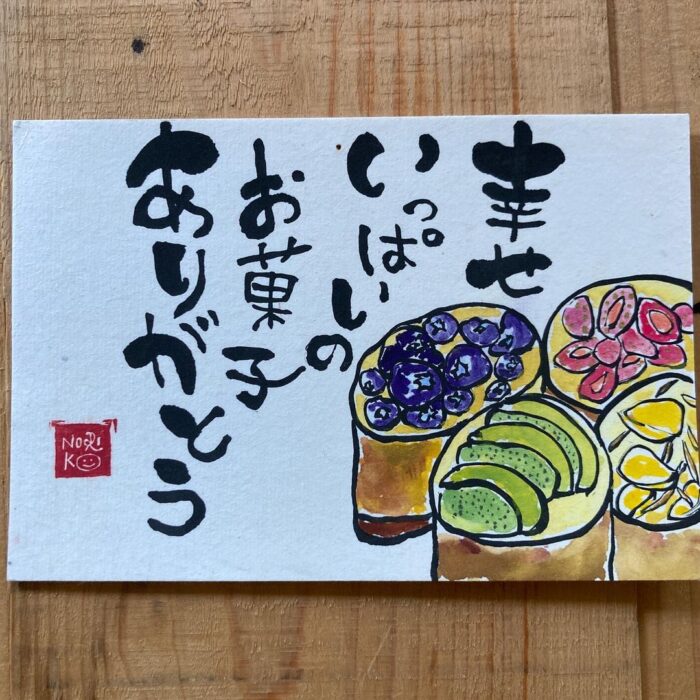 幸せ
いっぱいの
お菓子
ありがとう
NORI
KO